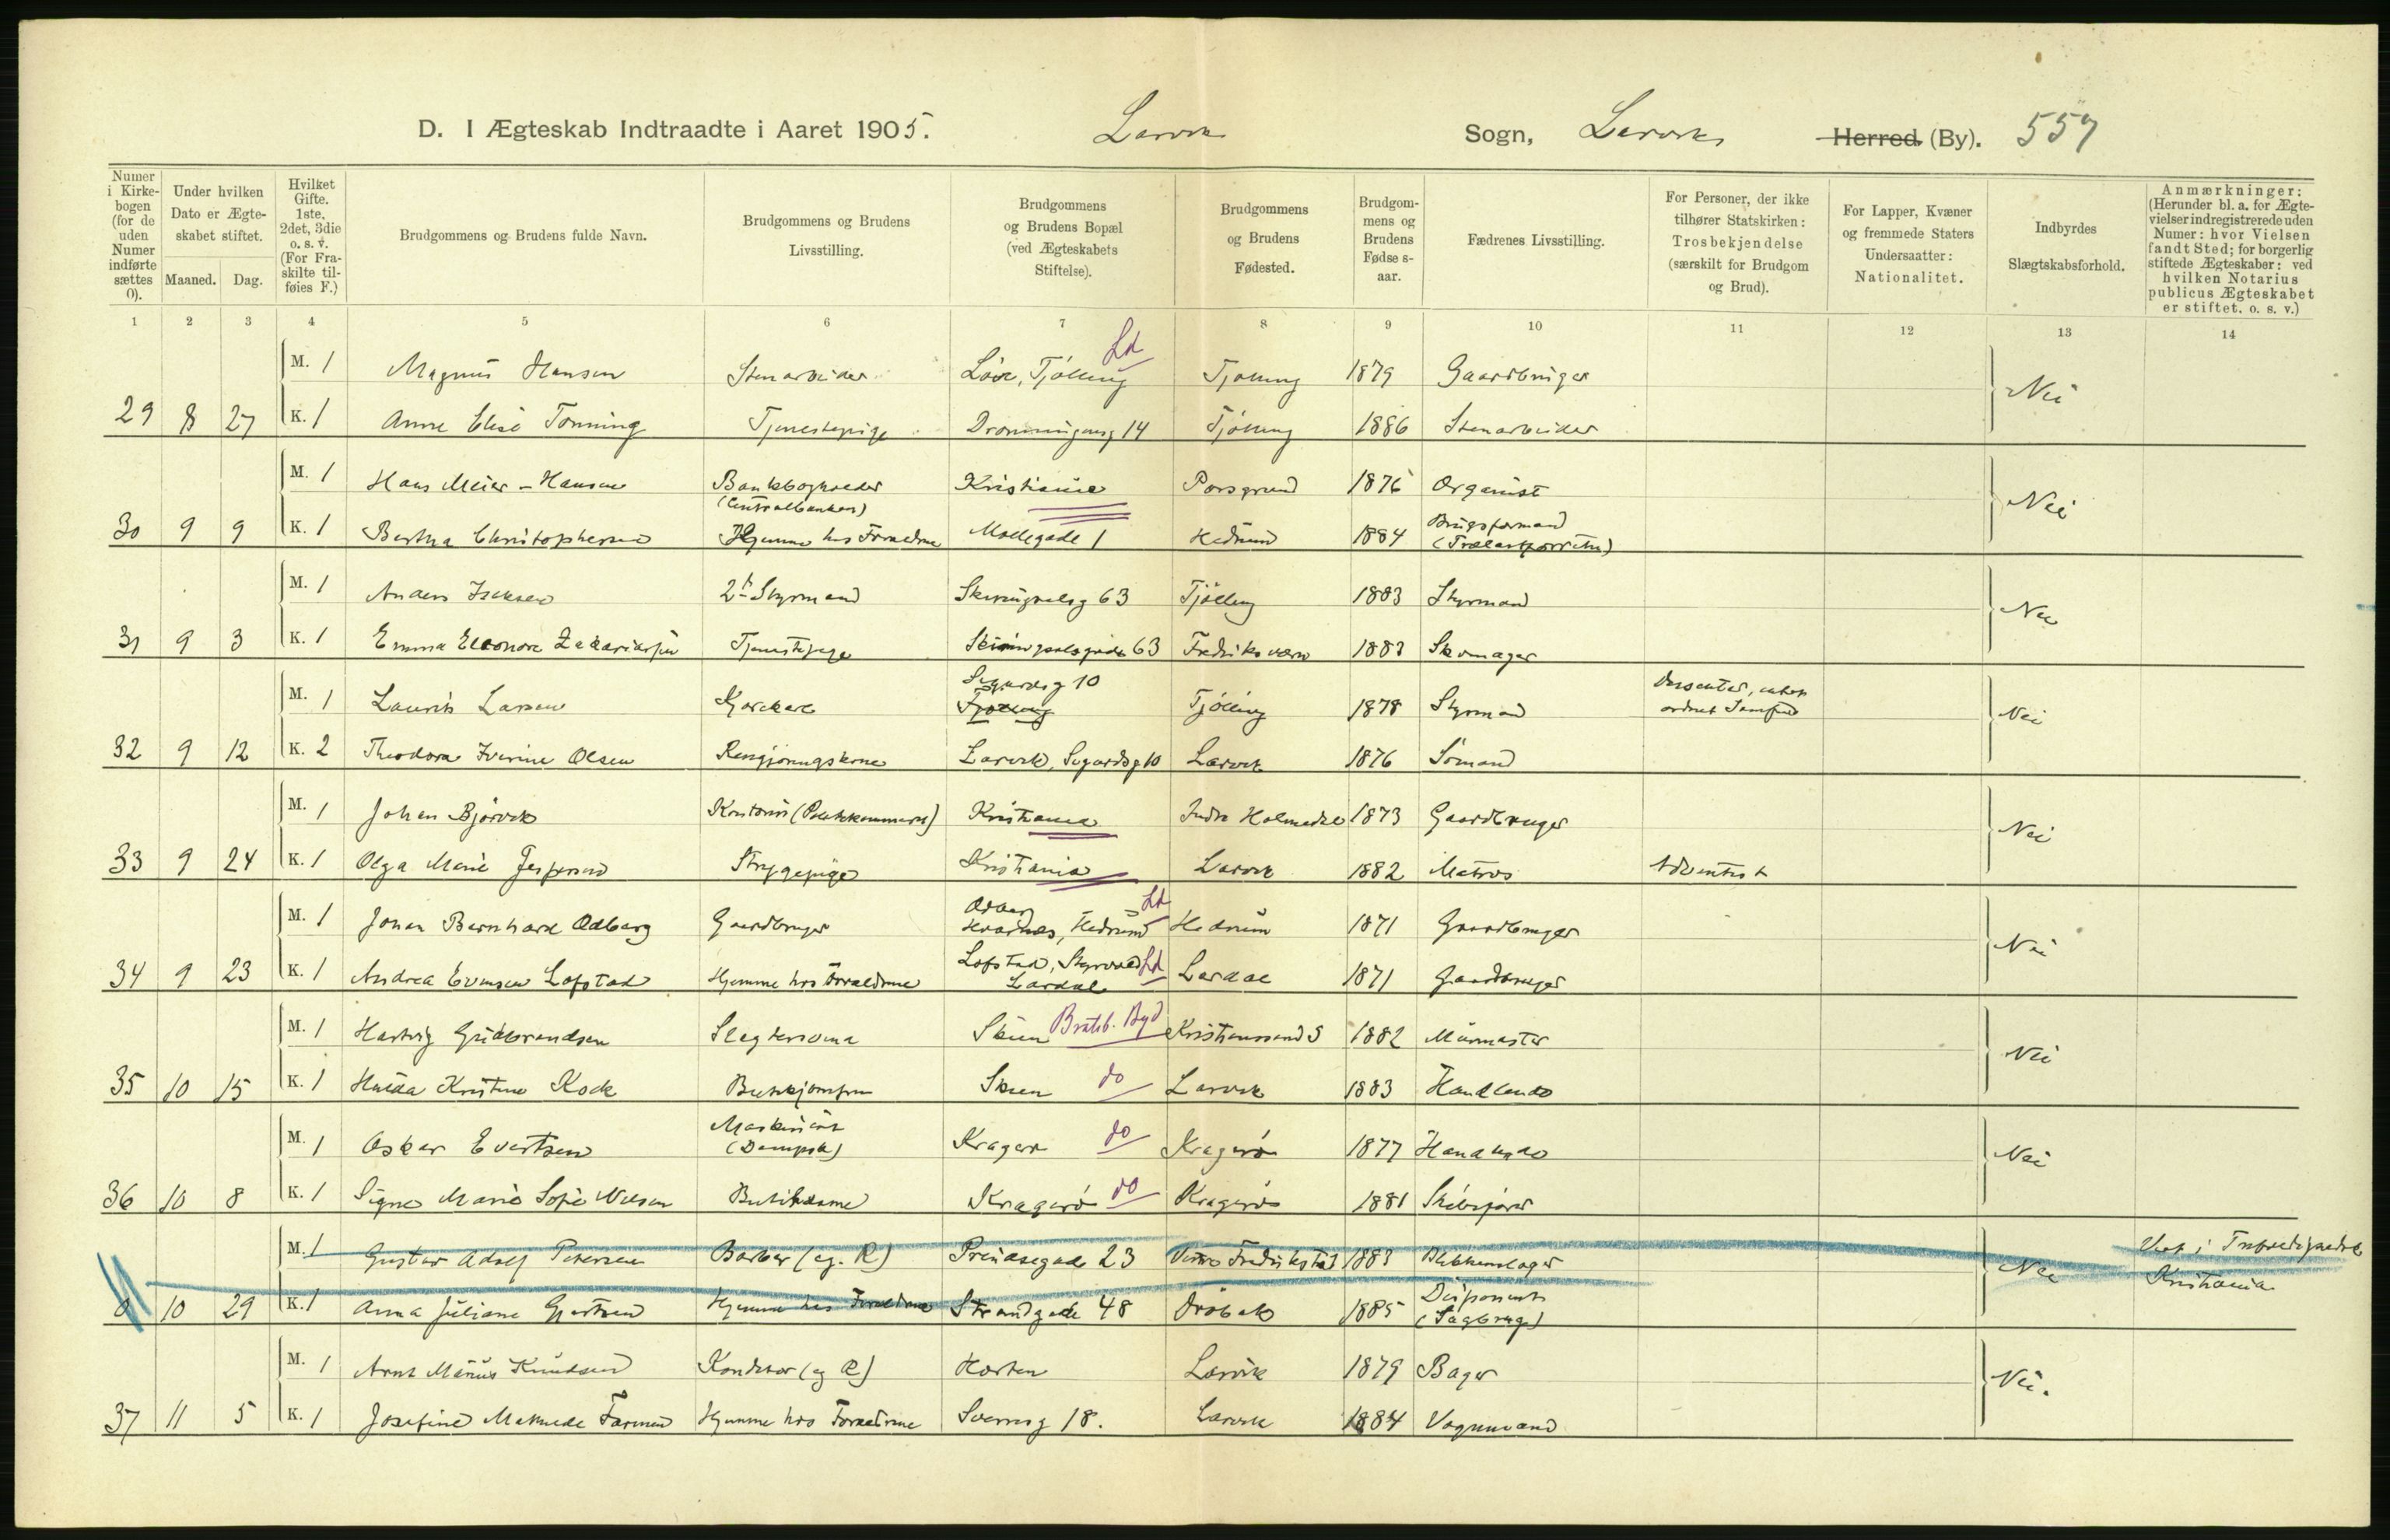 D. I Ægteskab Indtraadte i Aaret 1905. Larvik Sogn, Larvik Herred (By). 557
Numer i Kirkebogen (for de uden Numer indførte sættes 0).
Under hvilken Dato er Ægteskabet stiftet.
Maaned. Dag.
Hvilket Gifte. 1ste, 2det, 3die o. s. v. (For Fraskilte tilføies F.)
Brudgommens og Brudens fulde Navn.
Brudgommens og Brudens Livsstilling.
Brudgommens og Brudens Bopæl (ved Ægteskabets Stiftelse).
Brudgommens og Brudens Fødested.
Brudgommens og Brudens Fødse s-aar.
Fædrenes Livsstilling.
For Personer, der ikke tilhører Statskirken: Trosbekjendelse (særskilt for Brudgom og Brud).
For Lapper, Kvæner og fremmede Staters Undersaatter: Nationalitet.
Indbyrdes Slægtskabsforhold.
Anmærkninger: (Herunder bl. a. for Ægtevielser indregistrerede uden Numer: hvor Vielsen fandt Sted; for borgerlig stiftede Ægteskaber: ved hvilken Notarius publicus Ægteskabet er stiftet. o. s. v.)
1 2 3 4 5 6 7 8 9 10 11 12 13 14
M. 1 Magnus Hansen Stenarbeider Tjølling Ld Tjølling 1879 Gaardbruger Nei
29 8 27 K. 1 Anne Elise Tonning Tjenestepige Dronningensg 14 Tjølling 1886 Stenarbeider
M. 1 Hans Meier-Hansen Bankbogholder (Centralbanken) Kristiania Porsgrund 1876 Organist Nei
30 9 9 K. 1 Bertha Christophersen Hjemme hos Forældrene Møllegade 1 Hedrum 1884 Brugsformand
M. 1 Anders Isaksen 2den Styrmand Skiringsalsg 63 Tjølling 1883 Styrmand Nei
31 9 3 K. 1 Emma Eleonore Zakariassen Tjenestepige Skiringsalsgade 63 Fredriksværn 1883 Skomager
M. 1 Laurits Larsen Sigurdsg 10 Tjølling Tjølling 1878 Styrmand Dissenter, uden ordnet Samfund Nei
32 9 12 K. 2 Theodora Iverine Olsen Rengjøringskone Larvik, Sigurdsg 10 Larvik 1876 Sømand
M. 1 Johan Bjørvik Kontorist (Politikammeret) Kristiania Indre Holmedal 1873 Gaardbruger Nei
33 9 24 K. 1 Olga Marie Jespersen Strygepige Kristiania Larvik 1882 Matros Adventist
M. 1 Johan Bernhard Odberg Gaardbruger Odberg Kvarnes, Hedrum Ld Hedrum 1871 Gaardbruger Nei
34 9 23 K. 1 Andrea Evensen Lofstad Hjemme hos Forældrene Lofstad, Styrvold Lardal Ld Lardal 1871 Gaardbruger
M. 1 Hartvig Guldbrandsen Slagtersvend Skien Bratsb. Byd Kristianssand S 1882 Murmester Nei
35 10 15 K. 1 Hulda Kristine Kock Butikjomfru Skien do Larvik 1883 Handlende
M. 1 Oskar Evertsen Maskinist (Dampsk) Kragerø do Kragerø 1877 Handlende Nei
36 10 8 K. 1 Signe Marie Sofie Nilsen Butikdame Kragerø do Kragerø 1881 Skibsfører
M. 1 Gustav Adolf Petersen Barber (eg. R) Prindsegade 23 Vestre Fredrikstad 1883 Blikkenslager Nei Viet i Trefoldighedsk Kristiania
0 10 29 K. 1 Anna Juliane Gjertsen Hjemme hos Forældrene Strandgade 48 Drøbak 1885 Disponent (Sagbrug)
M. 1 Arnt Marius Knudsen Konditor (eg R) Horten Larvik 1879 Bager Nei.
37 11 5 K. 1 Josefine Hjemme hos Forældrene Sverresg 18. Larvik 1884 Vognmand